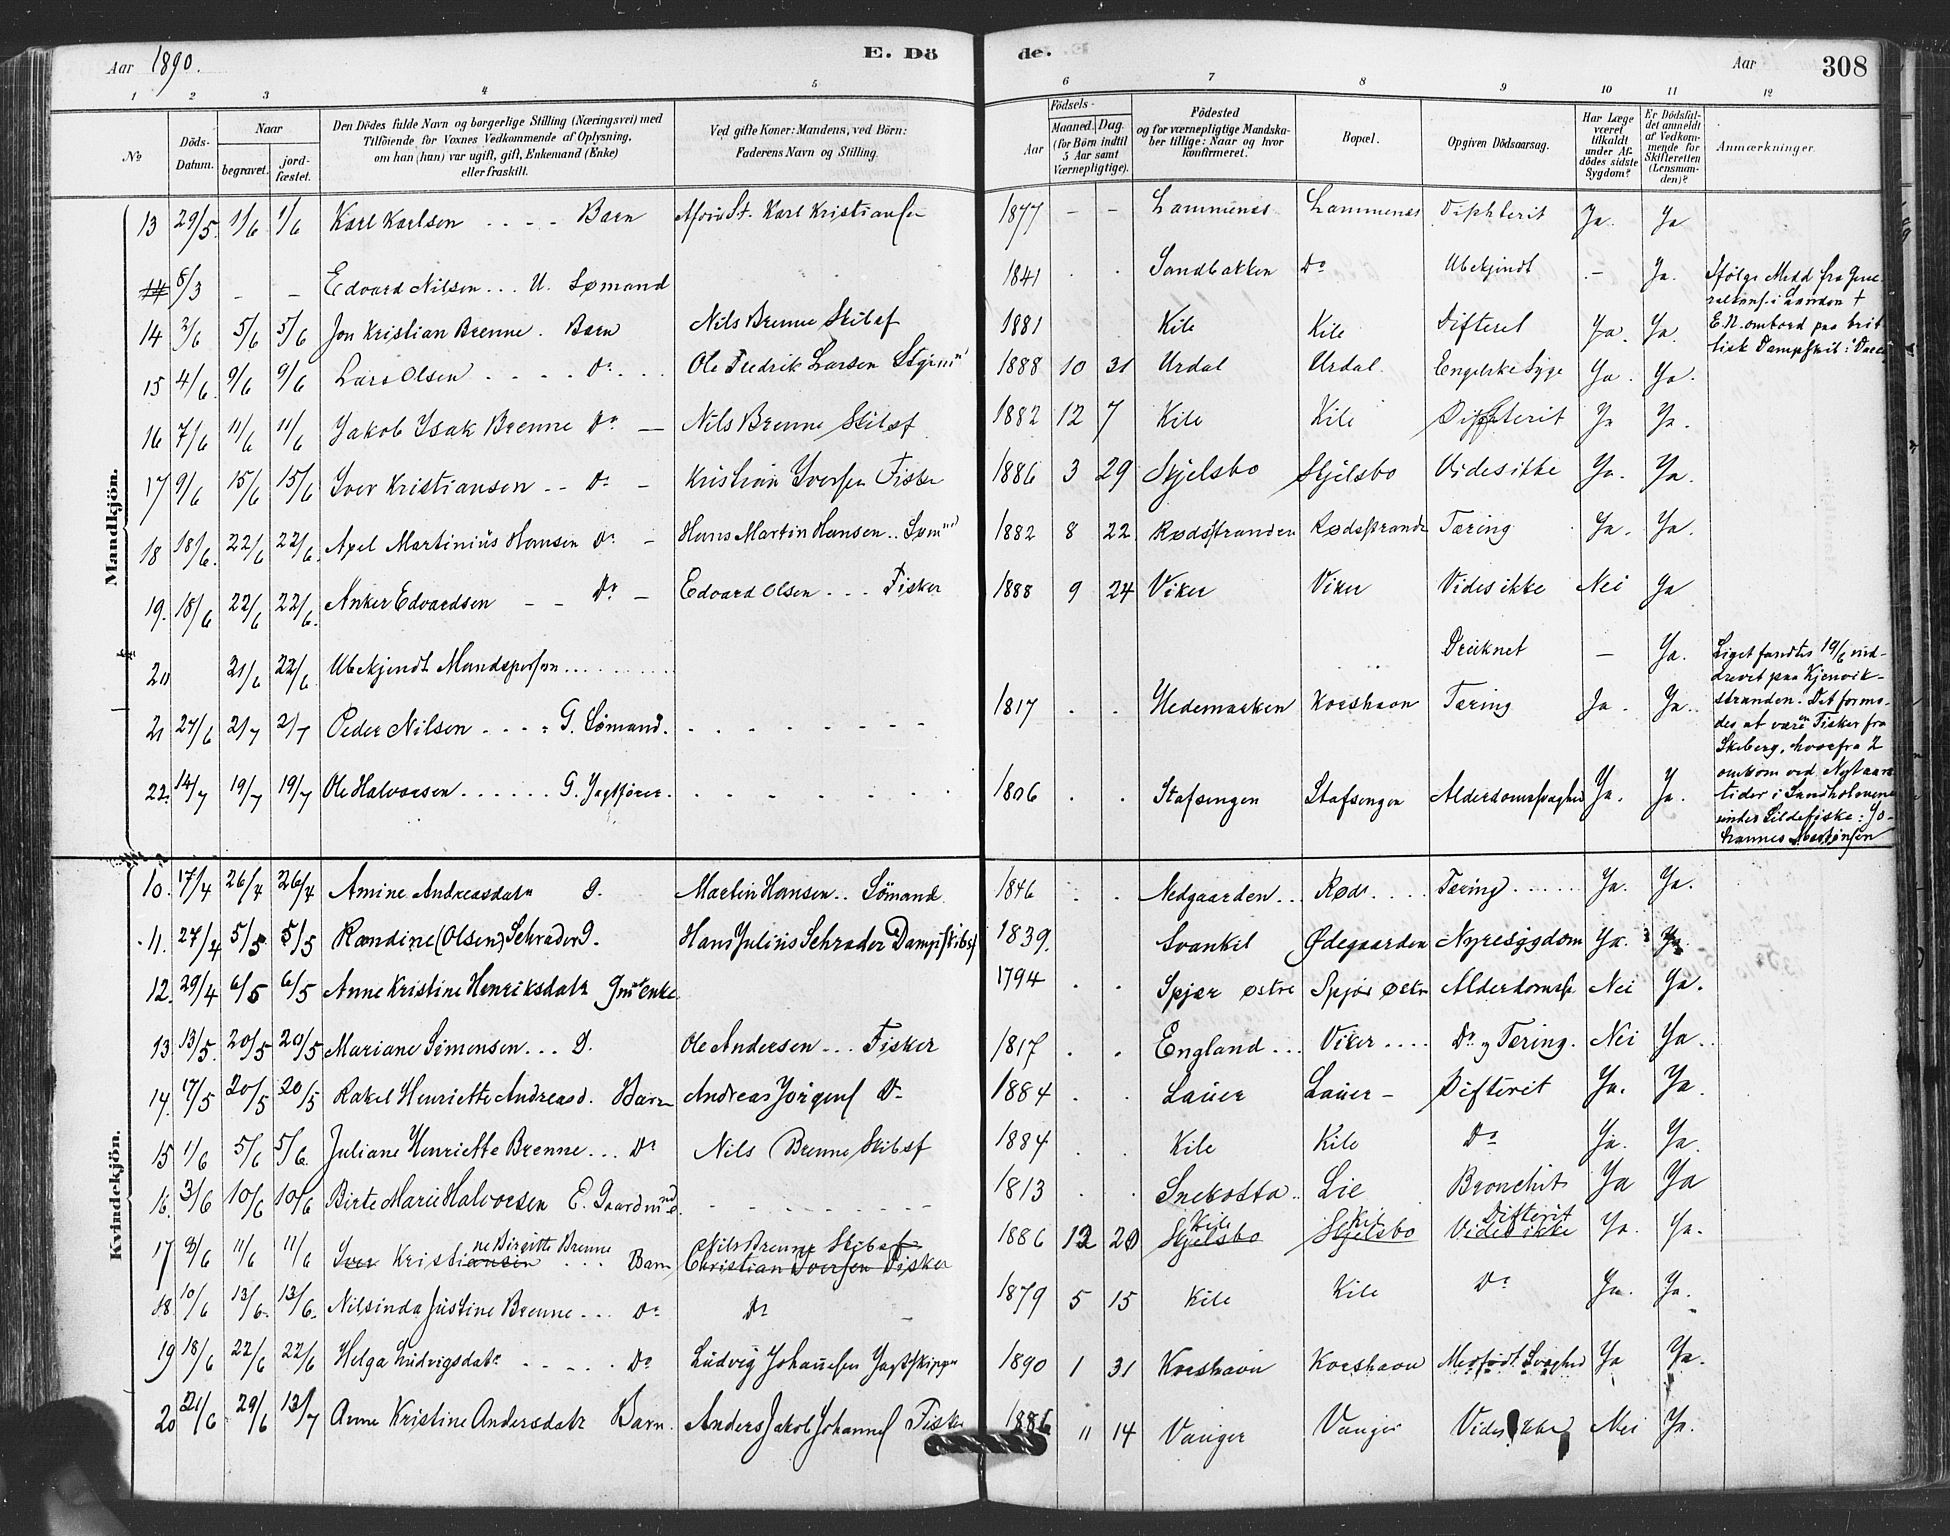 Aar 1890.
E. Dö
de.
Aar
308
1 2 3 4 5
6 7 8 9 10 11 12
No
Döds-Datum.
Naar
begravet.
jord-fæstet.
Den Dödes fulde Navn og borgerlige Stilling (Næringsvei) med
Tilföiende for Voxnes Vedkommende af Oplysning,
om han (hun) var ugift, gift, Enkemand (Enke)
eller fraskilt.
Ved gifte Koner: Mandens, ved Börn:
Faderens Navn og Stilling.
Födsels-
Aar
Maaned.
Dag.
(for Börn indtil
5 Aar samt
Værnepligtige).
Födested
og for værnepligtige Mandska-
ber tillige: Naar og hvor
konfirmeret.
Bopæl.
Opgiven Dödsaarsag.
Har Læge
været
tilkaldt
under Af-
dödes sidste
Sygdom?
Er Dödsfal-
det anmeldt
af Vedkom-
mende for
Skifteretten
(Lensman-
den)?
Anmærkninger.
Mandkjön.
13 29/5. 1/6 1/6 Karl Karlsen .... Barn St. Karl Kristiansen 1877 - - Lammenes Lammenes Diphterit Ja. Ja
14 8/3 - - Edvard Nilsen ... U. Sømand 1841 . . Sandbakken Do Ubekjendt - Ja. Ifølge Medd fra Gene-
ralkons. i London †
14 3/6 5/6 5/6 Jon Kristian Brenne. Barn Nils Brenne Skibsf 1881 Kile Kile Difterit Ja. Ja. E.N. ombord paa brit
tisk Dampskib:
15 4/6. 9/6 9/6 Lars Olsen .... Do... Ole Fredrik Larsen Styrm 1888 10 31 Urdal Urdal. Engelske Syge Ja. Ja.
16 7/6 11/6 11/6 Jakob Isak Brenne Do — Nils Brenne Skibsf 1882 12 7 Kile Kile Difterit Ja Ja.
17 9/6 15/6 15/6 Iver Kristiansen -- Do - Kristian Iversen Fisker 1886 3 29 Skjelsbo Skjelsbo Vides ikke Ja. Ja.
18 18/6. 22/6 22/6. Axel Martinius Hansen Do - Hans Martin Hansen.. Søm 1882 8 22 Rødsstranden Rødsstrand Tæring Ja. Ja.
19. 18/6 22/6 22/6. Anker Edvardsen - - Do - Edvard Olsen ... Fisker 1888 9 24 Viker Viker Vides ikke Nei Ja
20 21/6 22/6. Ubekjendt Mandsperson ......... Druknet — Ja. Liget fandtes 19/6 ind-
drevet paa Kjenvik-
21 27/6 2/7 2/7 Peder Nilsen .... G. Sømand. 1817 . . Hedemarken Korshavn Tæring Ja. Ja. stranden. Det formo-
des at være en Fisker fra
Skeberg, hvorfra 2
omkom ved Nytaars
22. 14/7 19/7 19/7 Ole Halvorsen ...... G. Jagtfører. 1806 . . Stafsengen Stafsengen Alderdomssvaghed Ja. Ja. tider i Sandholmene
under Sildefiske: Jo-
hannes Martinsen
Kvindekjön.
10. 17/4 26/4 26/4 Amine Andreasdatr G. Martin Hansen.. Sömand 1846 . . Nedgaarden... Rød..... Tæring...... Ja. Ja.
11. 27/4 5/5 5/5 Randine (Olsen) Schrader G. Hans Julius Schrader Dampskibsf 1839. Svankil Ødegaarden Nyresygdom Ja. Ja.
12. 29/4 6/5 6/5 Anne Kristine Henriksdatr Enke 1794 . . Spjær østre Spjær østr Alderdomss Nei Ja.
13 13/5. 20/5 20/5 Mariane Simensen... G. Ole Andersen... Fisker 1817 . . England... Viker.... Do og Tæring. Nei Ja.
14. 17/5 20/5 20/5 Rakel Henriette Andreasd. Barn Andreas Jörgens Do 1884 . . Lauer Lauer - Difterit Ja. Ja.
15 1/6 5/6 5/6. Juliane Henriette Brenne... Do Nils Brenne Skibsf 1884 . . Kile Kile Do Ja. Ja.
16. 3/6 10/6 10/6 Birte Marie Halvorsen E. Gaardm 1813 . . Snekotta.. Lie Bronchit Ja Ja
17 8/6 11/6 11/6 Iver Kristiansen ne Birgitte Brenne ... Barn Nils Brenne Skibsf Christian Iversen Fisker 1886 12 20 Kile Skjelsbo Kile Skjelsbo Difterit Vides ikke Ja. Ja.
18. 10/6 13/6. 13/6. Nilsinda Justine Brenne... Do Do 1879 5 15 Kile Kile Do Ja. Ja.
19 18/6 22/6 22/6 Helga Ludvigsdatr ..... Do Ludvig Johansen Jagtskipper 1890 1 31 Korshavn Korshavn Medfödt Svaghed Ja Ja.
20 21/6 29/6 13/7 Anne Kristine Andersdatr Barn. Anders Jakob Johannes Fisker 1886 11 14 Vauger Vauger Vides ikke Nei Ja.